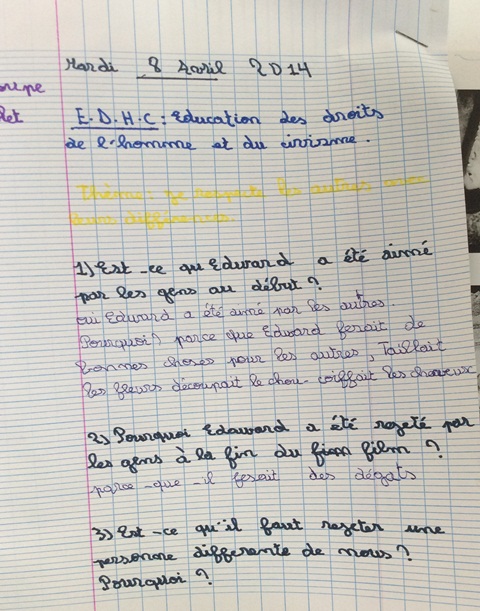 Mardi 8 Avril 2014
E.D.H.C : Education des droits
de l'homme et du civisme.
Thème : Je respecte les autres avec
leurs différences.
1) Est-ce qu'Edward a été aimé
par les gens au début ?
oui Edward a été aimé par les autres.
Pourquoi ? parce que Edward fesait de
bonnes choses pour les autres, Taillait
les fleurs découpait le chou - coiffait les cheveux
2) Pourquoi Edaward a été rejeté par
les gens à la fin du film ?
parce-que-il fesait des dégats
3) Est-ce qu'il faut rejeter une
personne differente de nous ?
Pourquoi ?